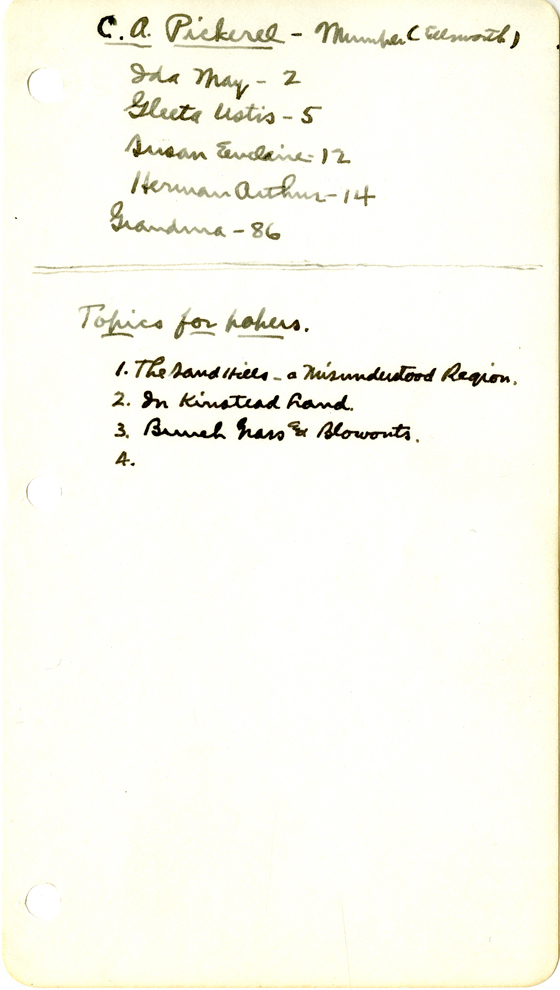 C. A. Pickerel - Mumper (Ellsworth)
Ida May - 2
Gleeta Ustis - 5
Susan - 12
Herman Arthur - 14
Grandma - 86
Topics for papers.
1. The Sand Hills - a Misunderstood Region.
2. In Kinstead Land.
3. Bunch Grass & Blowouts.
4.